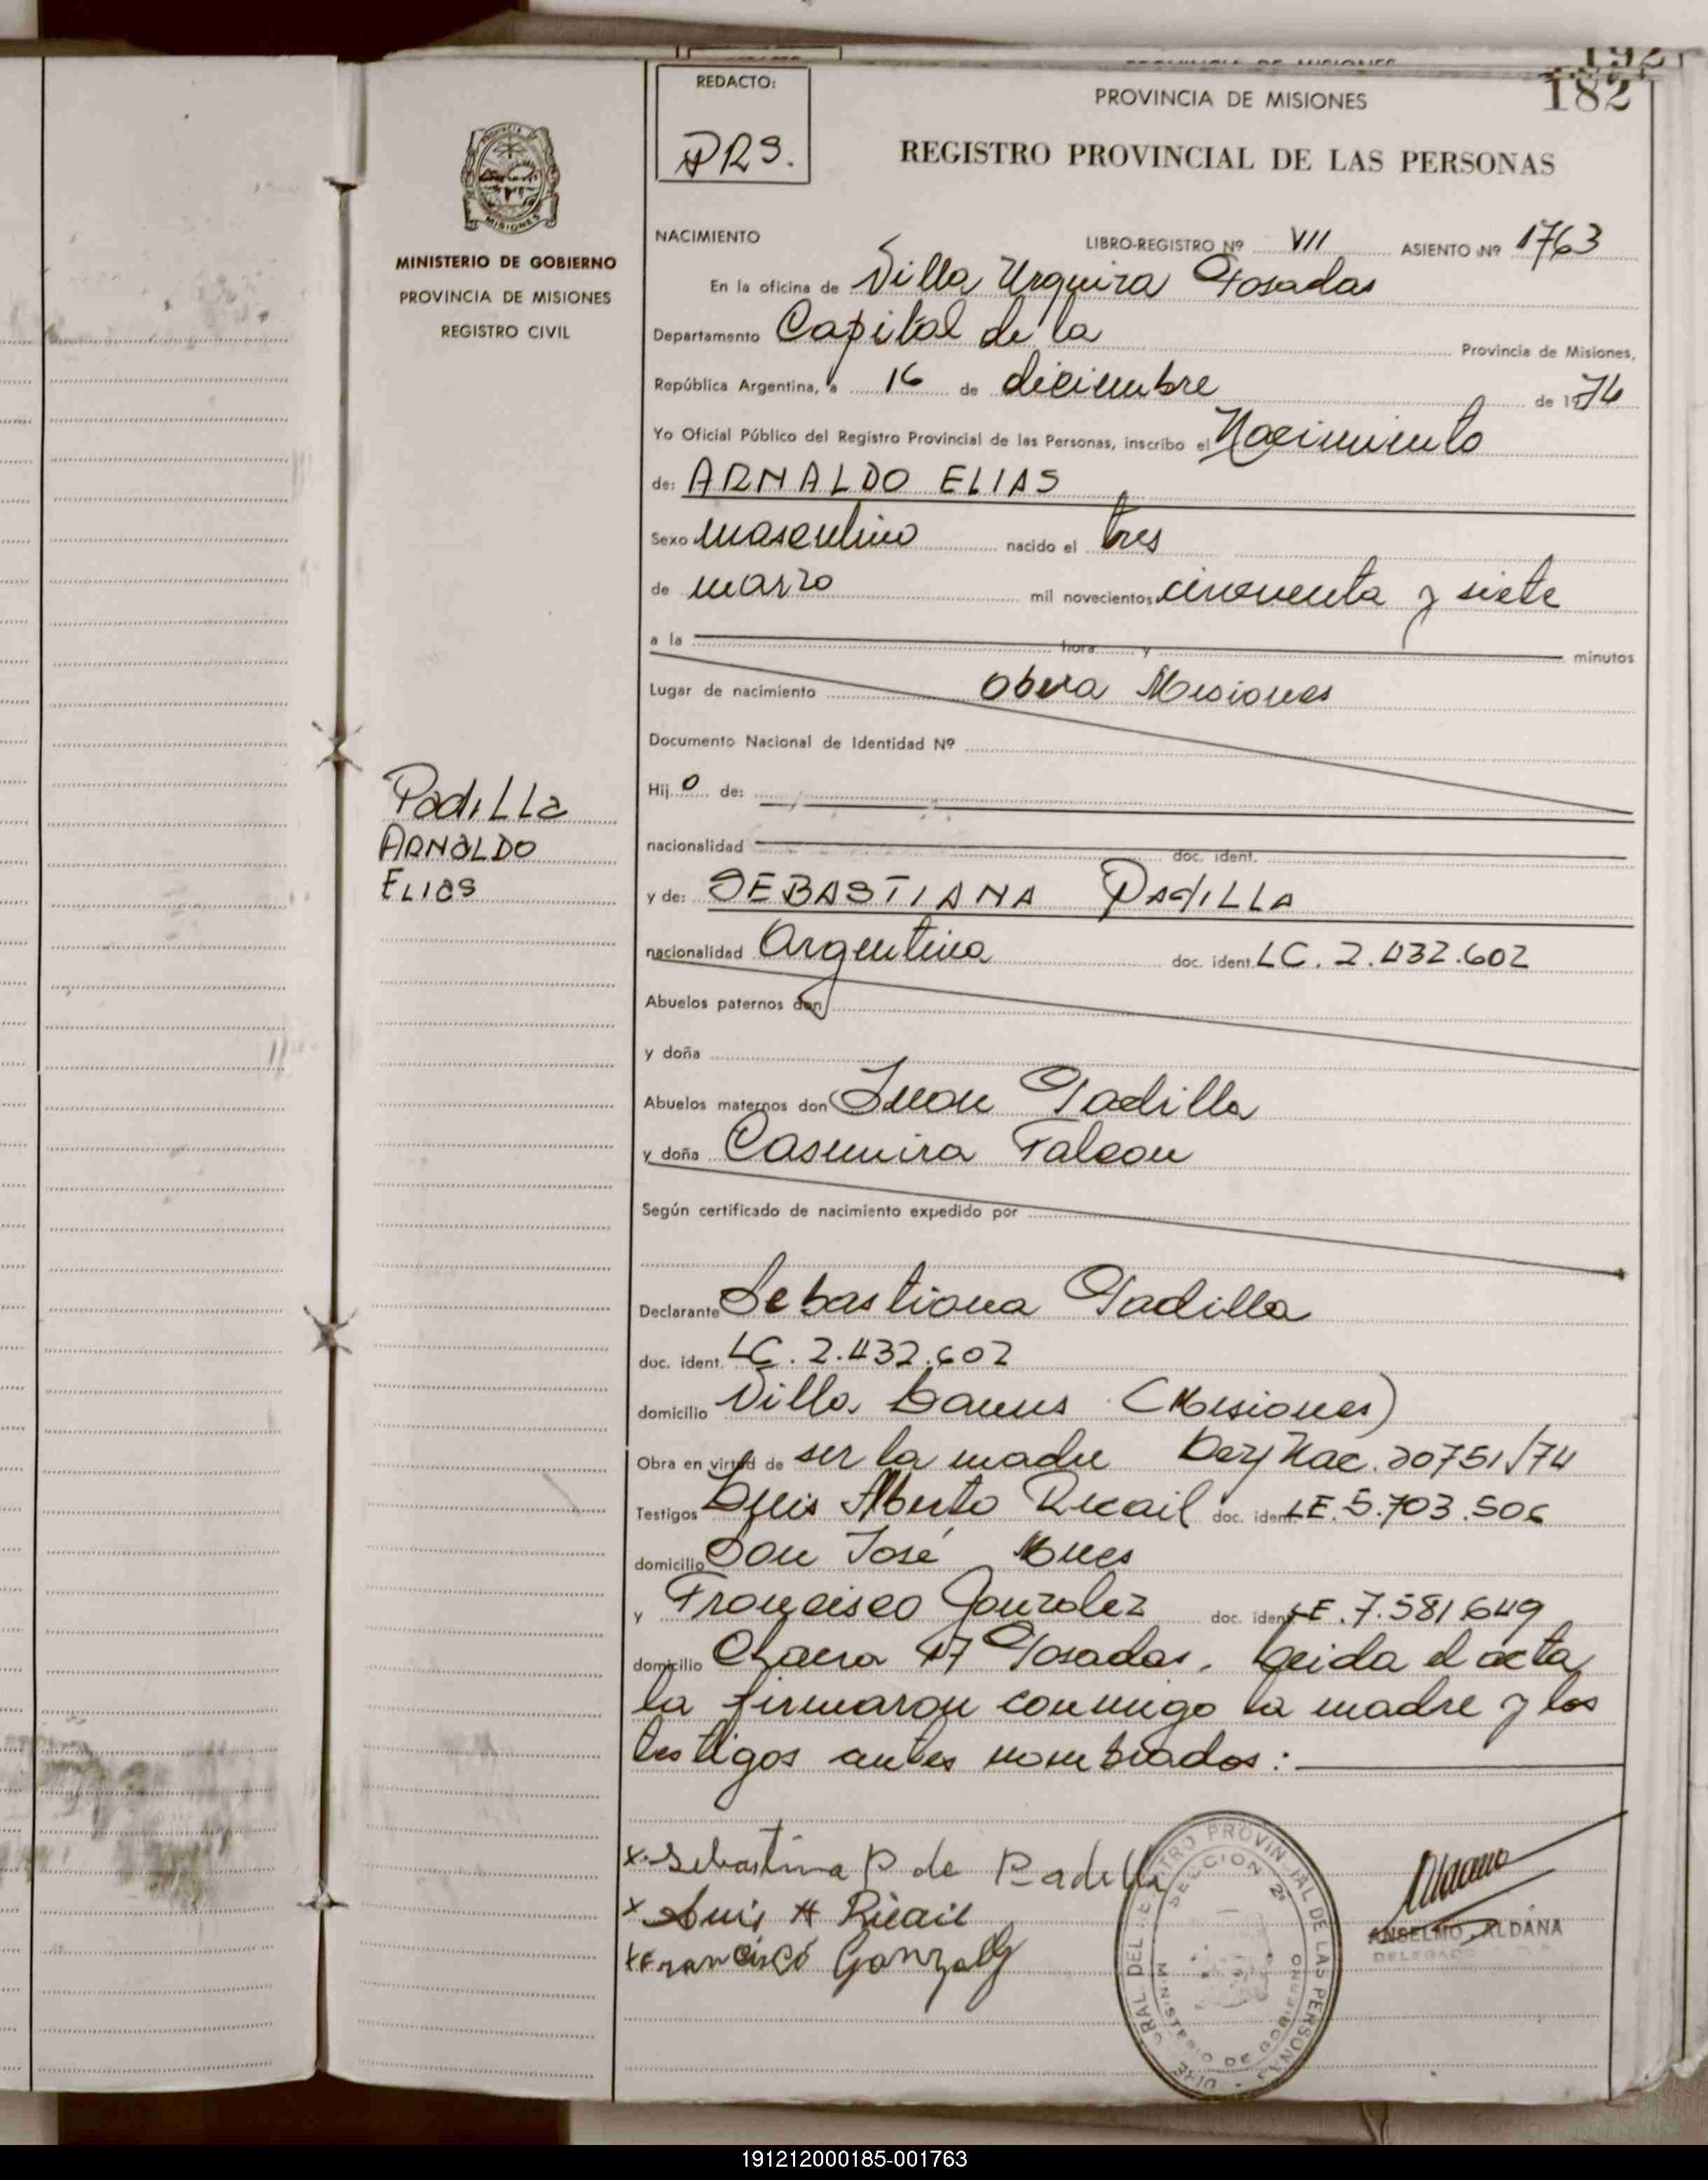 192
182
REDACTO:
PRS.
PROVINCIA DE MISIONES
REGISTRO PROVINCIAL DE LAS PERSONAS
MISIONES
MINISTERIO DE GOBIERNO
PROVINCIA DE MISIONES
REGISTRO CIVIL
NACIMIENTO LIBRO-REGISTRO Nº VII ASIENTO Nº 1763
En la oficina de Villa Urquiza Posadas
Departamento Capital de la Provincia de Misiones,
República Argentina, a 16 de diciembre de 1974
Yo Oficial Público del Registro Provincial de las Personas, inscribo el Nacimiento
de: ARNALDO ELIAS
Sexo masculino nacido el tres
de marzo mil novecientos cincuenta y siete
a la hora y minutos
Lugar de nacimiento Obera Misiones
Documento Nacional de Identidad Nº
Hij o de:
nacionalidad doc. ident.
Padilla
Arnaldo
Elias
y de: SEBASTIANA PADILLA
nacionalidad Argentina doc. ident. LC. 2.432.602
Abuelos paternos don
y doña
Abuelos maternos don Juan Padilla
y doña Casemira Falcon
Según certificado de nacimiento expedido por
Declarante Sebastiana Padilla
doc. ident. LC. 2.432.602
domicilio Villa Lanus (Misiones)
Obra en virtud de ser la madre Ley Nac. 20751/74
Testigos Luis Alberto Ricail doc. ident. LE. 5.703.506
domicilio San José Mnes
y Francisco Gonzalez doc. ident. LE. 7.581.649
domicilio Chacra 47 Posadas. Leida el acta
la firmaron conmigo la madre y los
testigos antes nombrados:
x. Sebastina P de Padilla
x Luis A Ricail
x Francisco Gonzalez
REGISTRO PROVINCIAL DE LAS PERSONAS
SECCION 2ª
MINISTERIO DE GOBIERNO
ANSELMO ALDANA
DELEGADO
191212000185-001763